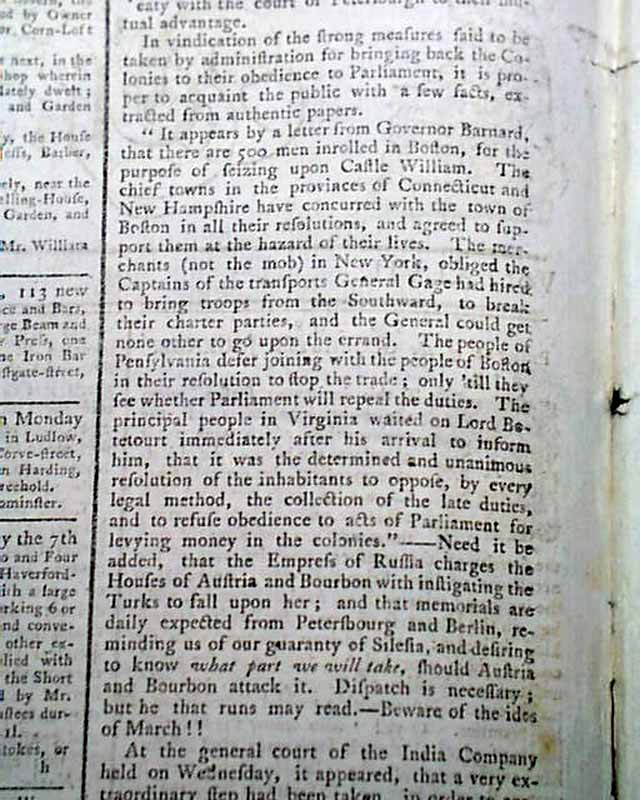 eaty with the court of Petersburgh to their mu-
tual advantage.
In vindication of the ſtrong meaſures ſaid to be
taken by adminiſtration for bringing back the Co-
lonies to their obedience to Parliament, it is pro-
per to acquaint the public with a few facts, ex-
tracted from authentic papers.
" It appears by a letter from Governor Barnard,
that there are 500 men inrolled in Boſton, for the
purpoſe of ſeizing upon Caſtle William. The
chief towns in the provinces of Connecticut and
New Hampſhire have concurred with the town of
Boſton in all their reſolutions, and agreed to ſup-
port them at the hazard of their lives. The mer-
chants (not the mob) in New York, obliged the
Captains of the tranſports General Gage had hired
to bring troops from the Southward, to break
their charter parties, and the General could get
none other to go upon the errand. The people of
Penſylvania defer joining with the people of Boſton
in their reſolution to ſtop the trade; only 'till they
ſee whether Parliament will repeal the duties. The
principal people in Virginia waited on Lord Bo-
tetourt immediately after his arrival to inform
him, that it was the determined and unanimous
reſolution of the inhabitants to oppoſe, by every
legal method, the collection of the late duties,
and to refuſe obedience to acts of Parliament for
levying money in the colonies."——Need it be
added, that the Empreſs of Ruſſia charges the
Houſes of Auſtria and Bourbon with inſtigating the
Turks to fall upon her; and that memorials are
daily expected from Peterſbourg and Berlin, re-
minding us of our guaranty of Sileſia, and deſiring
to know what part we will take, ſhould Auſtria
and Bourbon attack it. Diſpatch is neceſſary;
but he that runs may read.—Beware of the ides
of March!!
At the general court of the India Company
held on Wedneſday, it appeared, that a very ex-
traordinary ſtep had been taken, in order to
ed by Owner
or Corn-Loft
next, in the
ſhop wherein
lately dwelt;
and Garden
y, the Houſe
Jeſſs, Barber,
ely, near the
elling-Houſe,
Garden, and
Mr. William
, 113 new
ce and Bars,
rge Beam and
r Preſs, one
ne Iron Bar
ſtgate-ſtreet,
n Monday
in Ludlow,
Corve-ſtreet,
n Harding,
reehold.
ominſter.
y the 7th
o and Four
Haverford-
ith a large
orking 6 or
nd conve-
other ex-
plied with
the Short
d by Mr.
aſſees dur-
1l.
tokes, or
h